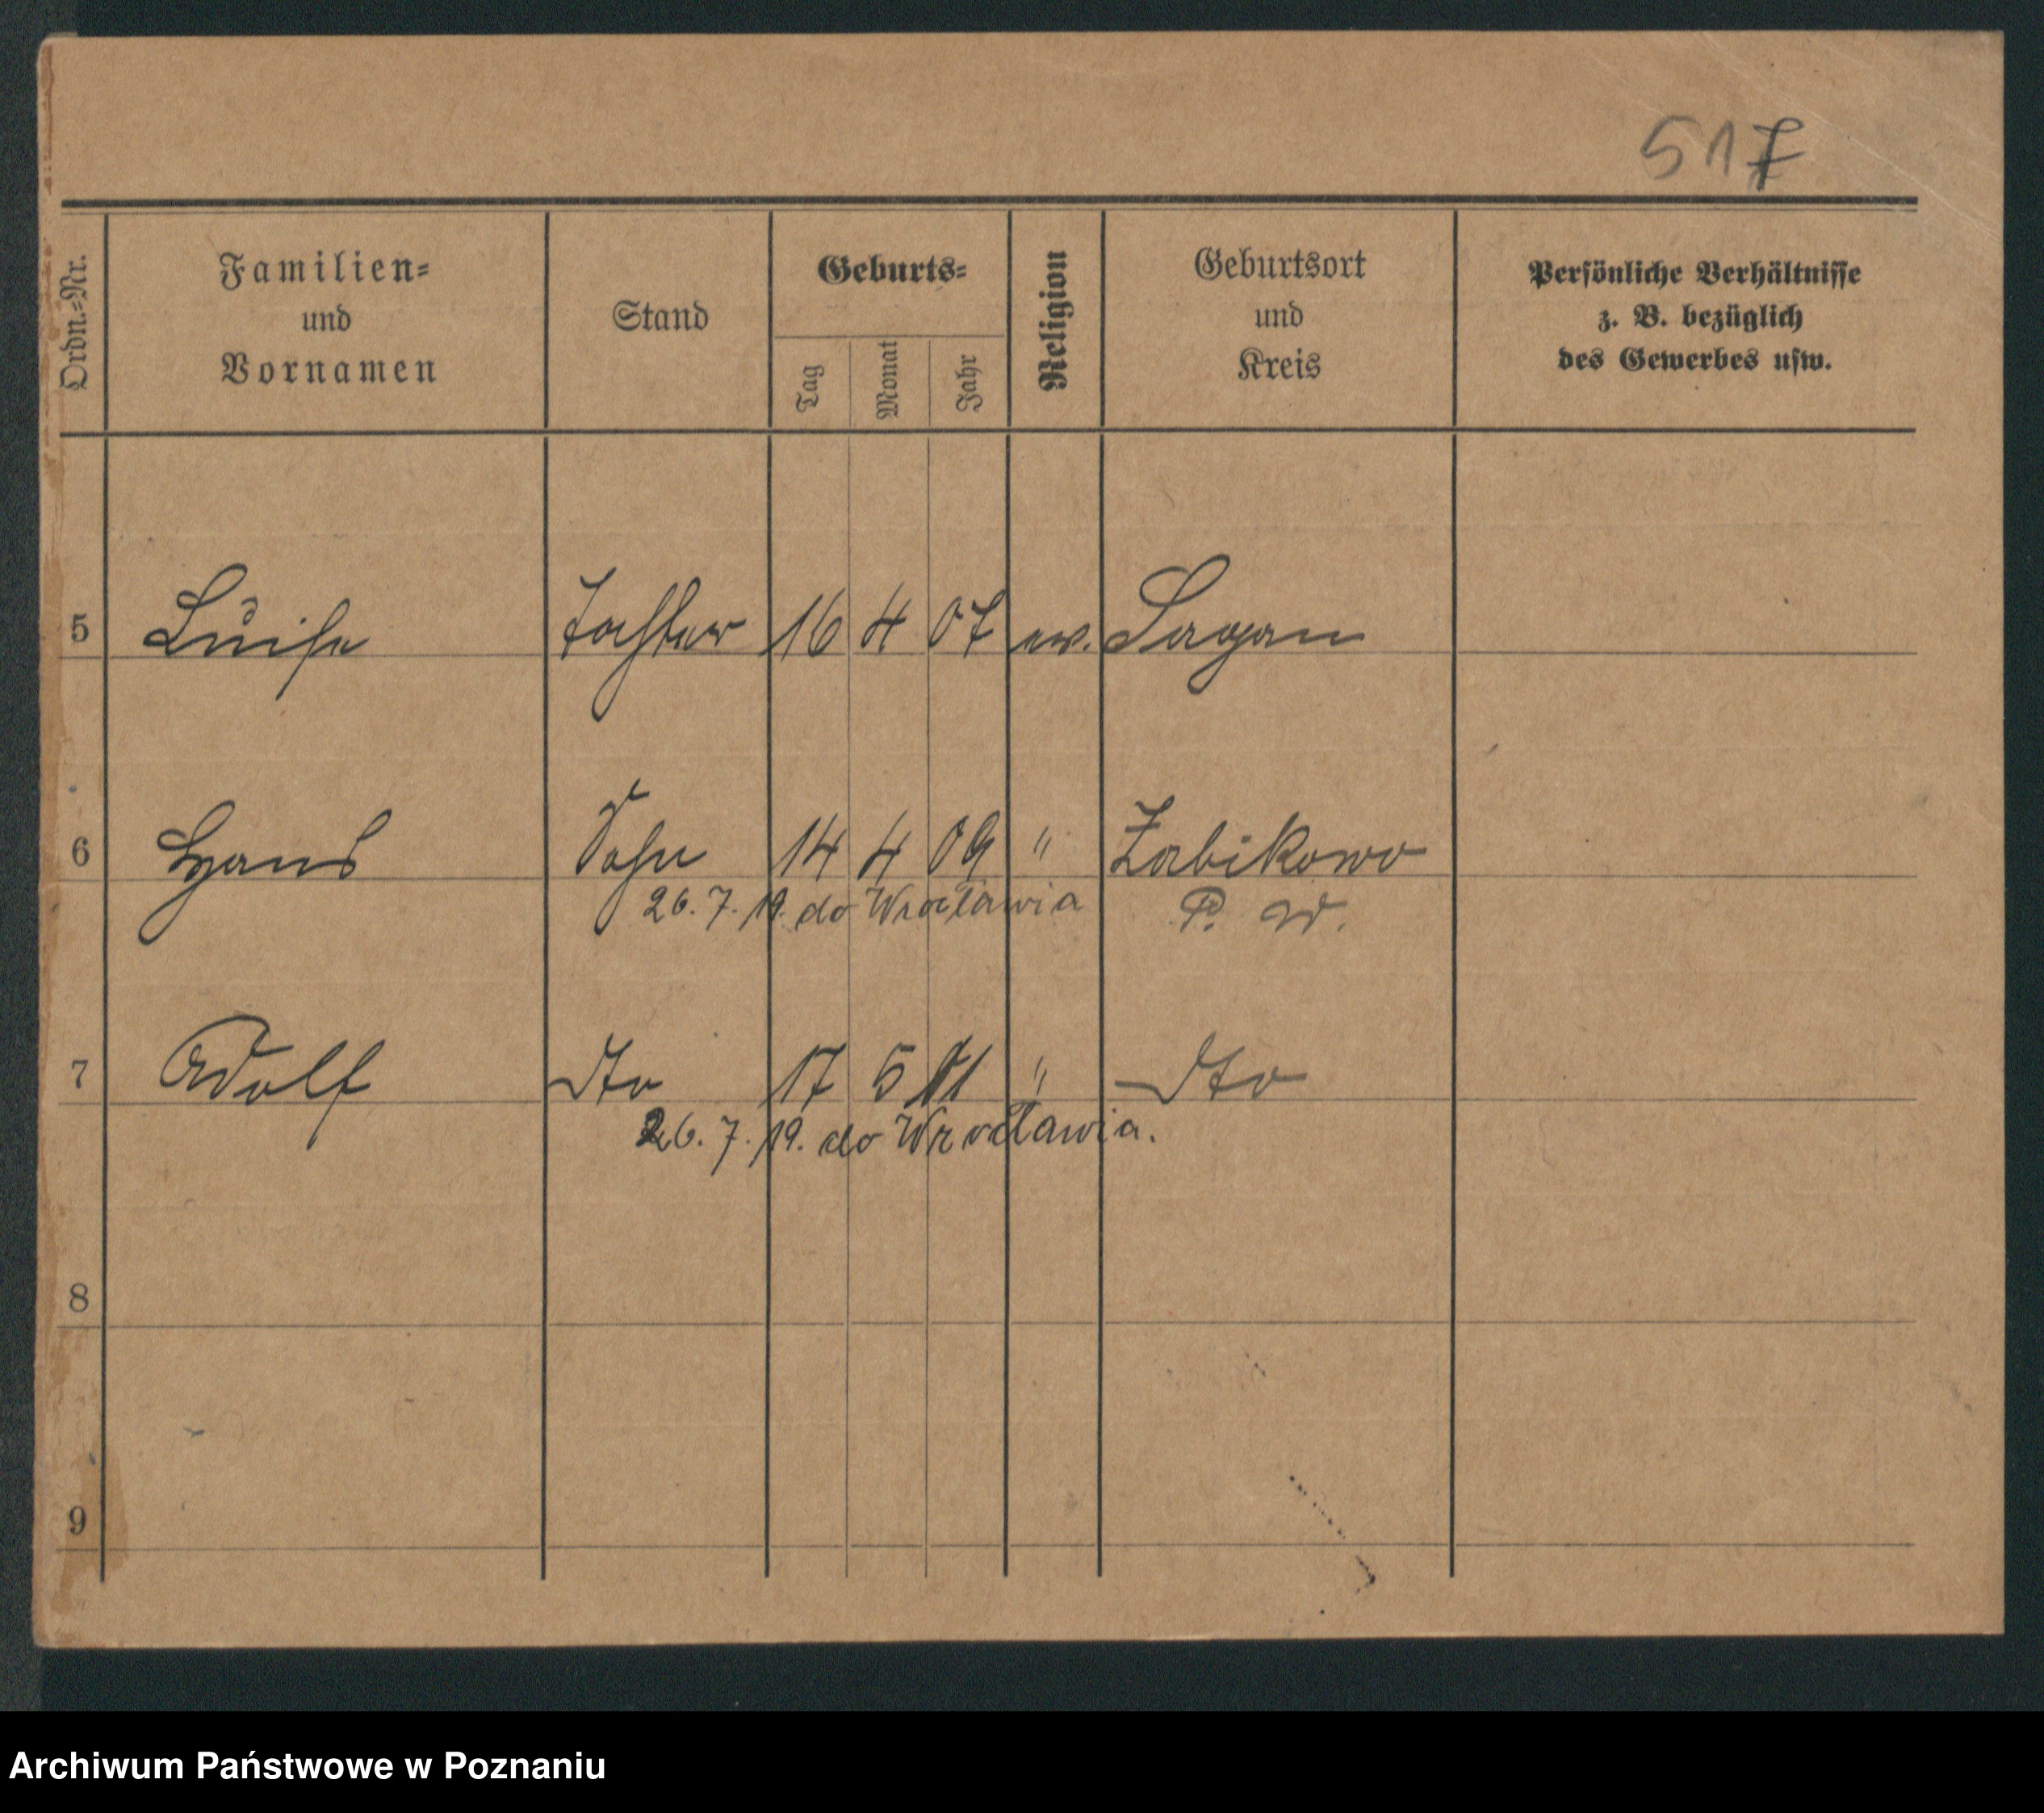 517
Ordn.-Nr.
Familien-
und
Vornamen
Stand
Geburts-
Tag
Monat
Jahr
Religion
Geburtsort
und
Kreis
Persönliche Verhältnisse
z. B. bezüglich
des Gewerbes usw.
5 Luise Tochter 16 4 07 ev. Sagan
6 Hans Sohn 14 4 09 " Zabikowo
26. 7. 19. do Wrocławia P. W.
7 Adolf dto 17 5 11 " dto
26. 7. 19. do Wrocławia.
8
9
Archiwum Państwowe w Poznaniu